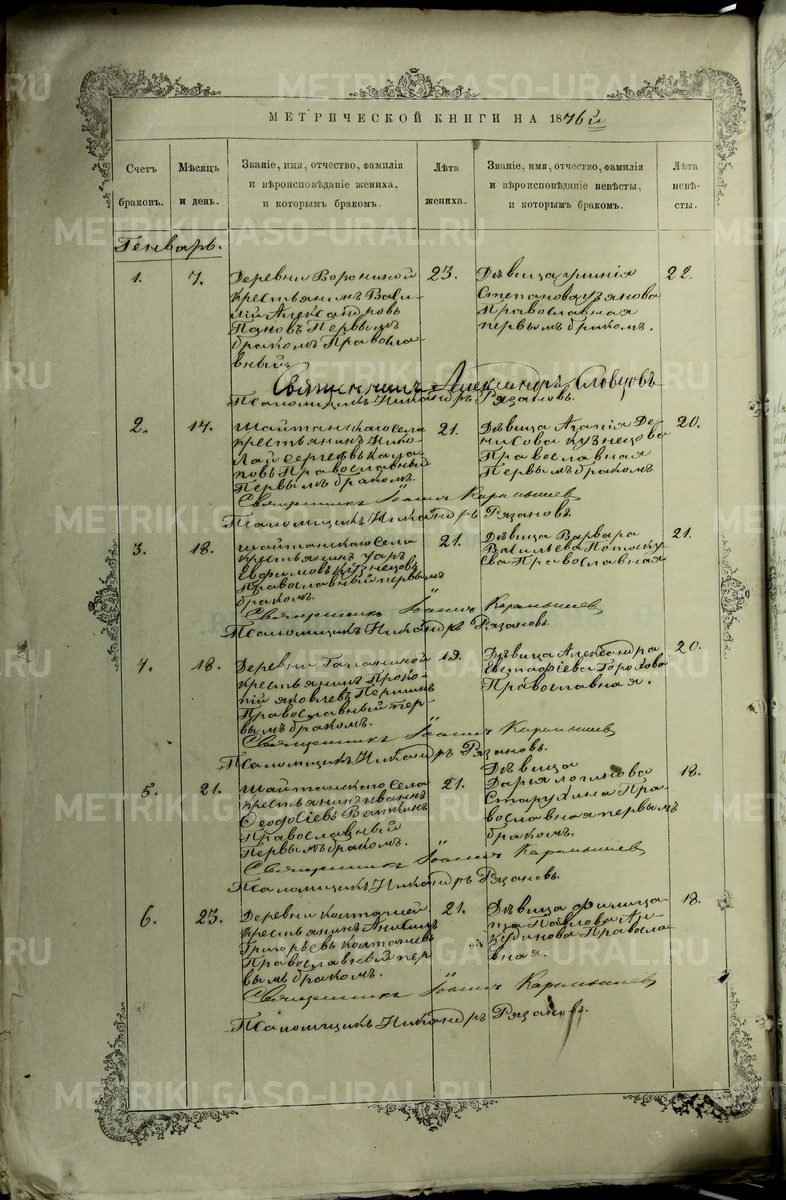 МЕТРИЧЕСКОЙ КНИГИ НА 1876й
Счетъ браковъ.
Мѣсяцъ и день.
Званіе, имя, отчество, фамилія и вѣроисповѣданіе жениха, и которымъ бракомъ.
Лѣта жениха.
Званіе, имя, отчество, фамилія и вѣроисповѣданіе невѣсты, и которымъ бракомъ.
Лѣта невѣсты.
Генварь.
1. 7.
Деревни Ворониной
крестьянинъ Васи-
лій Александровъ
Пановъ Первымъ
бракомъ Правосла-
вный.
23.
Дѣвица
Степанова
Православная
первымъ бракомъ.
22.
Священникъ Александръ Словцовъ
Псаломщикъ Никандръ Рязановъ.
2. 14.
Шайтанскаго села
крестьянинъ Нико-
лай Сергѣевъ
Православный
Первымъ бракомъ.
21.
Дѣвица Агапія Де-
нисова Кузнецова
Православная
Первымъ бракомъ
20.
Священникъ Іоаннъ Карамышев
Псаломщикъ Никандръ Рязановъ.
3. 18.
Шайтанскаго Села
крестьянинъ
Евфимовъ Кузнецовъ
Православный первымъ
бракомъ.
21.
Дѣвица Варвара
Васильева Потоску-
ева Православная
21.
Священникъ Іоаннъ Карамышев
Псаломщикъ Никандръ Рязановъ.
4. 18.
Деревни
крестьянинъ Проко-
пій Яковлевъ Першинъ
Православный пер-
вымъ бракомъ.
19.
Дѣвица Александра
Евстафіева Горохова
Православная.
20.
Священникъ Іоаннъ Карамышев
Псаломщикъ Никандръ Рязановъ.
5. 21.
Шайтанскаго Села
крестьянинъ Иванъ
Феодосіевъ Вяткинъ
Православный
Первымъ бракомъ.
21.
Дѣвица
Дарія Логинова
Старухина Пра-
вославная первымъ
бракомъ.
18.
Священникъ Іоаннъ Карамышев
Псаломщикъ Никандръ Рязановъ.
6. 23.
Деревни Колташей
крестьянинъ
Григорьевъ Колташевъ
Православный пер-
вымъ бракомъ.
21.
Дѣвица Филица-
та Павлова
Правосла-
вная.
18.
Священникъ Іоаннъ Карамышев
Псаломщикъ Никандръ Рязановъ.
METRIKI.GASO-URAL.RU